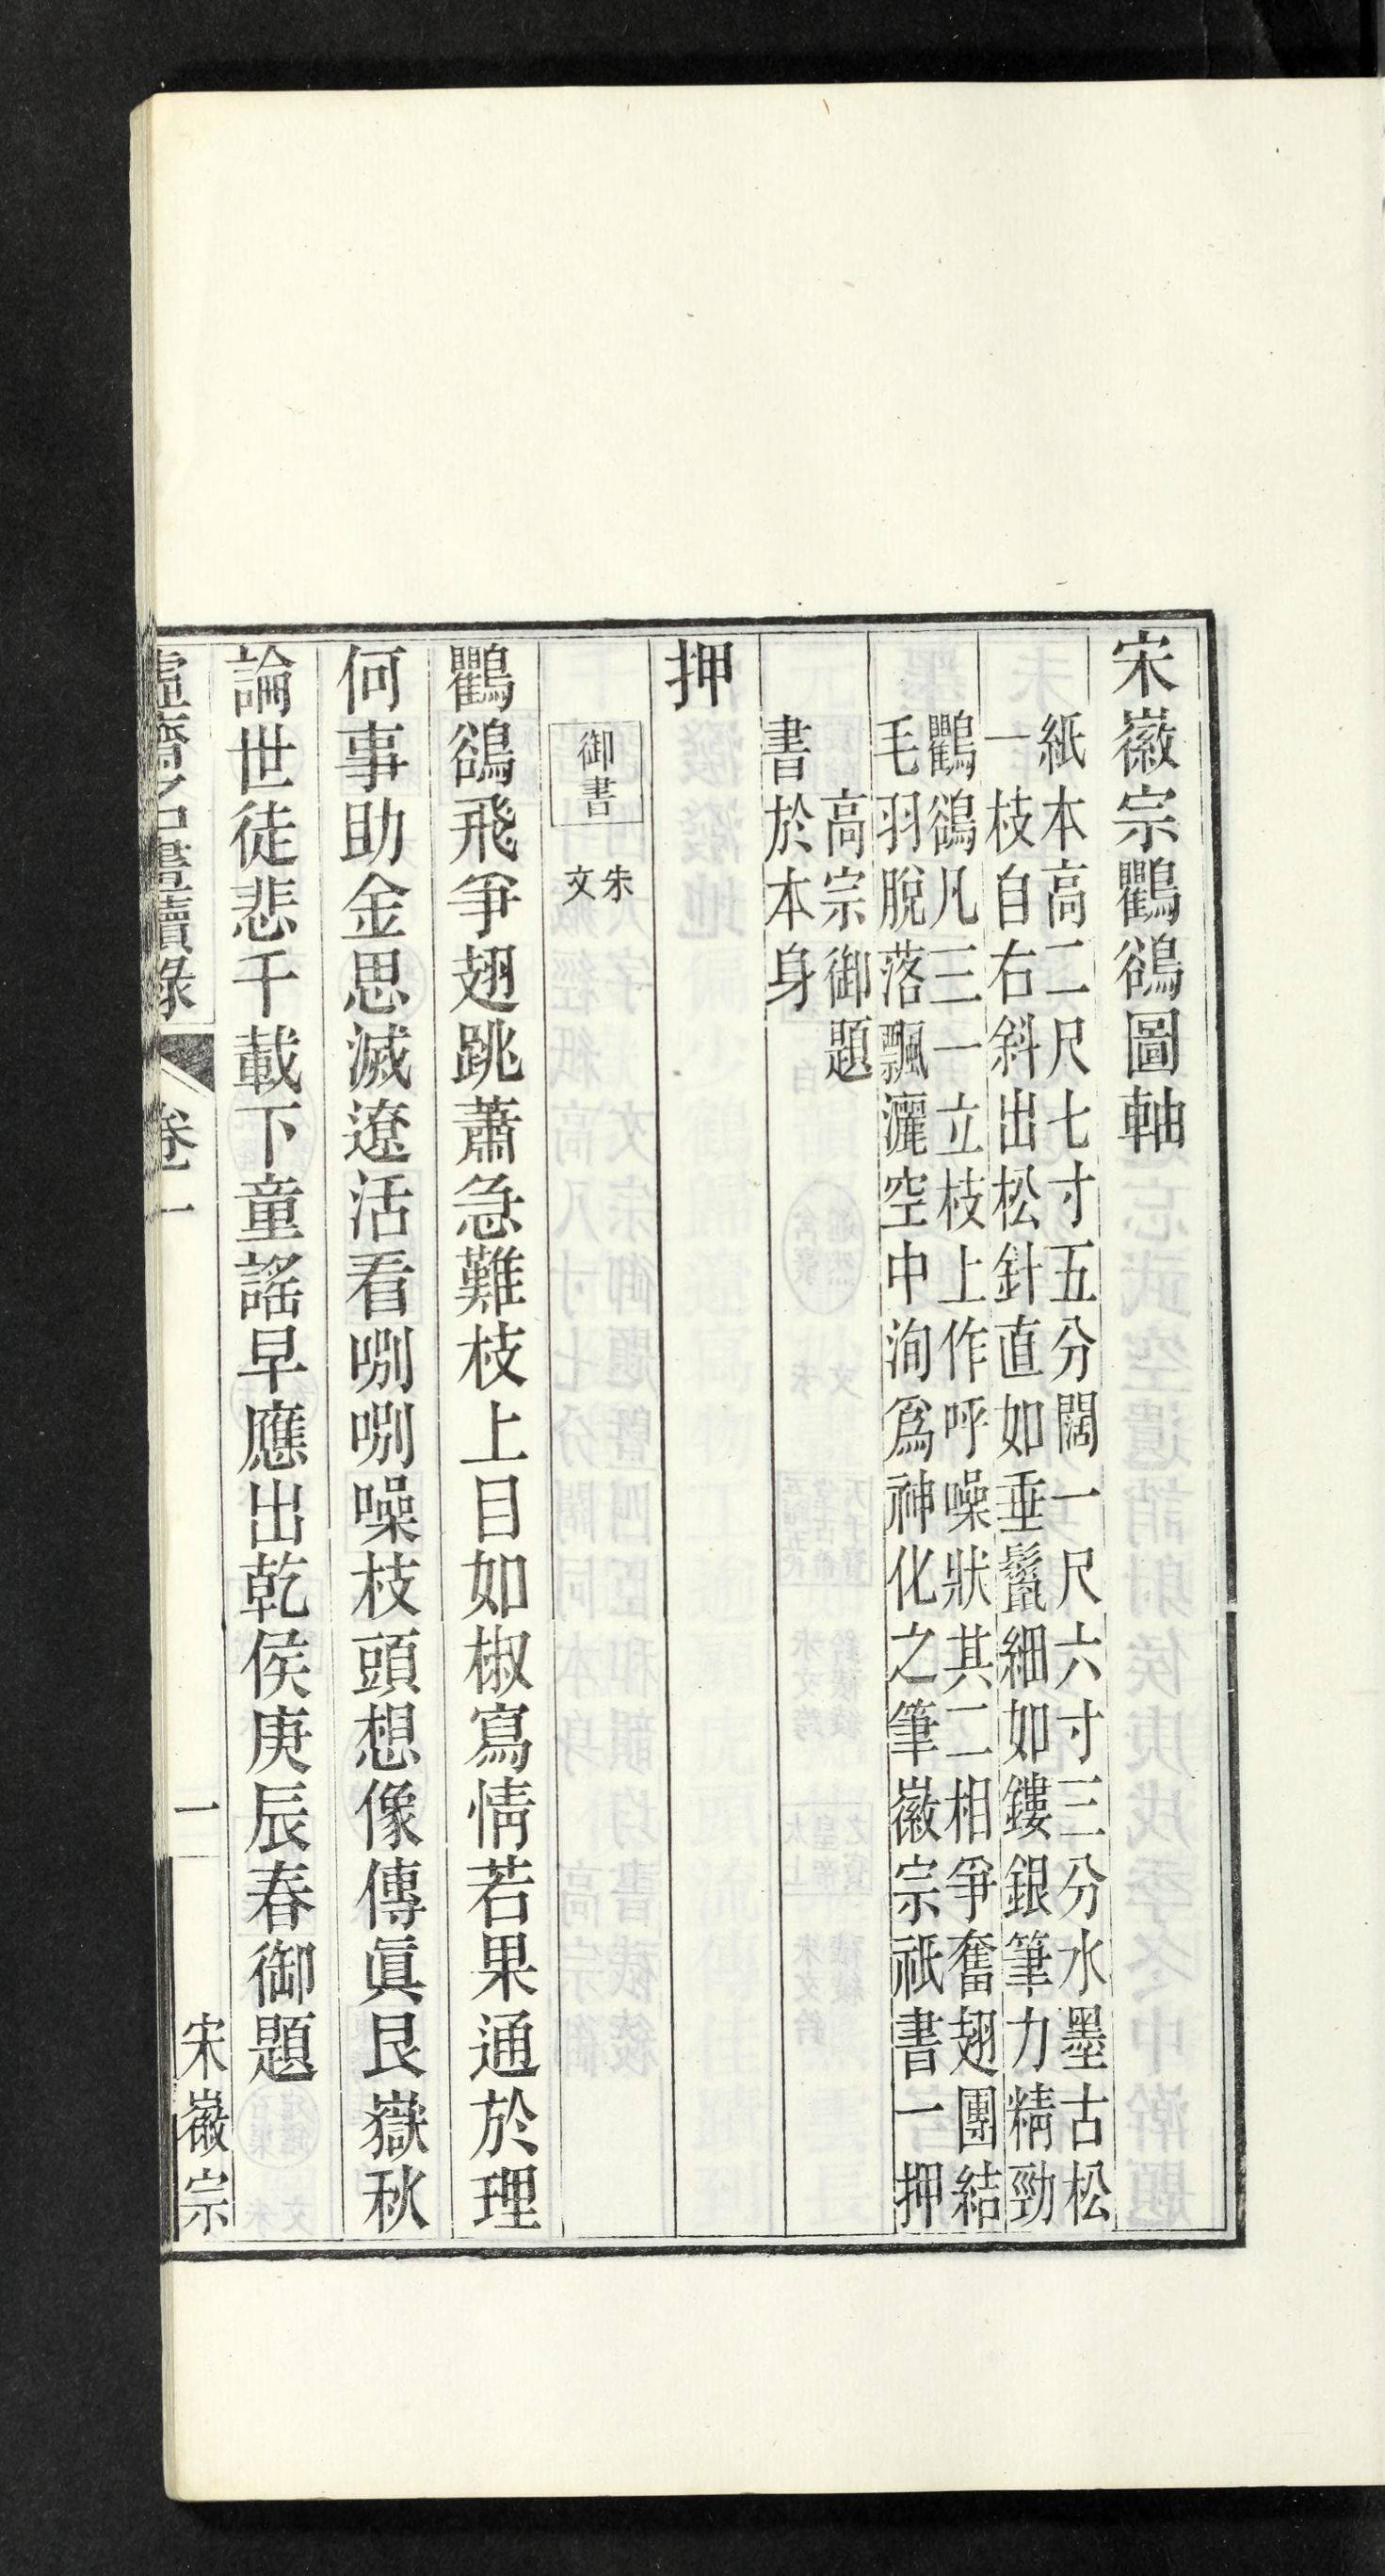 宋徽宗鸜鵒圖軸
紙本高二尺七寸五分闊一尺六寸三分水墨古松
一枝自右斜出松針直如垂鬣細如鏤銀筆力精勁
鸜鵒凡三一立枝上作呼噪狀其二相爭奮翅團結
毛羽脫落飄灑空中洵爲神化之筆徽宗祇書一押
高宗御題
書於本身
押
御書
朱文
鸜鵒飛爭翅跳蕭急難枝上目如椒寫情若果通於理
何事助金思滅遼活看咧咧噪枝頭想像傳眞艮嶽秋
論世徒悲千載下童謠早應出乾侯庚辰春御題
虛齋名畫續錄
卷一
一
宋徽宗